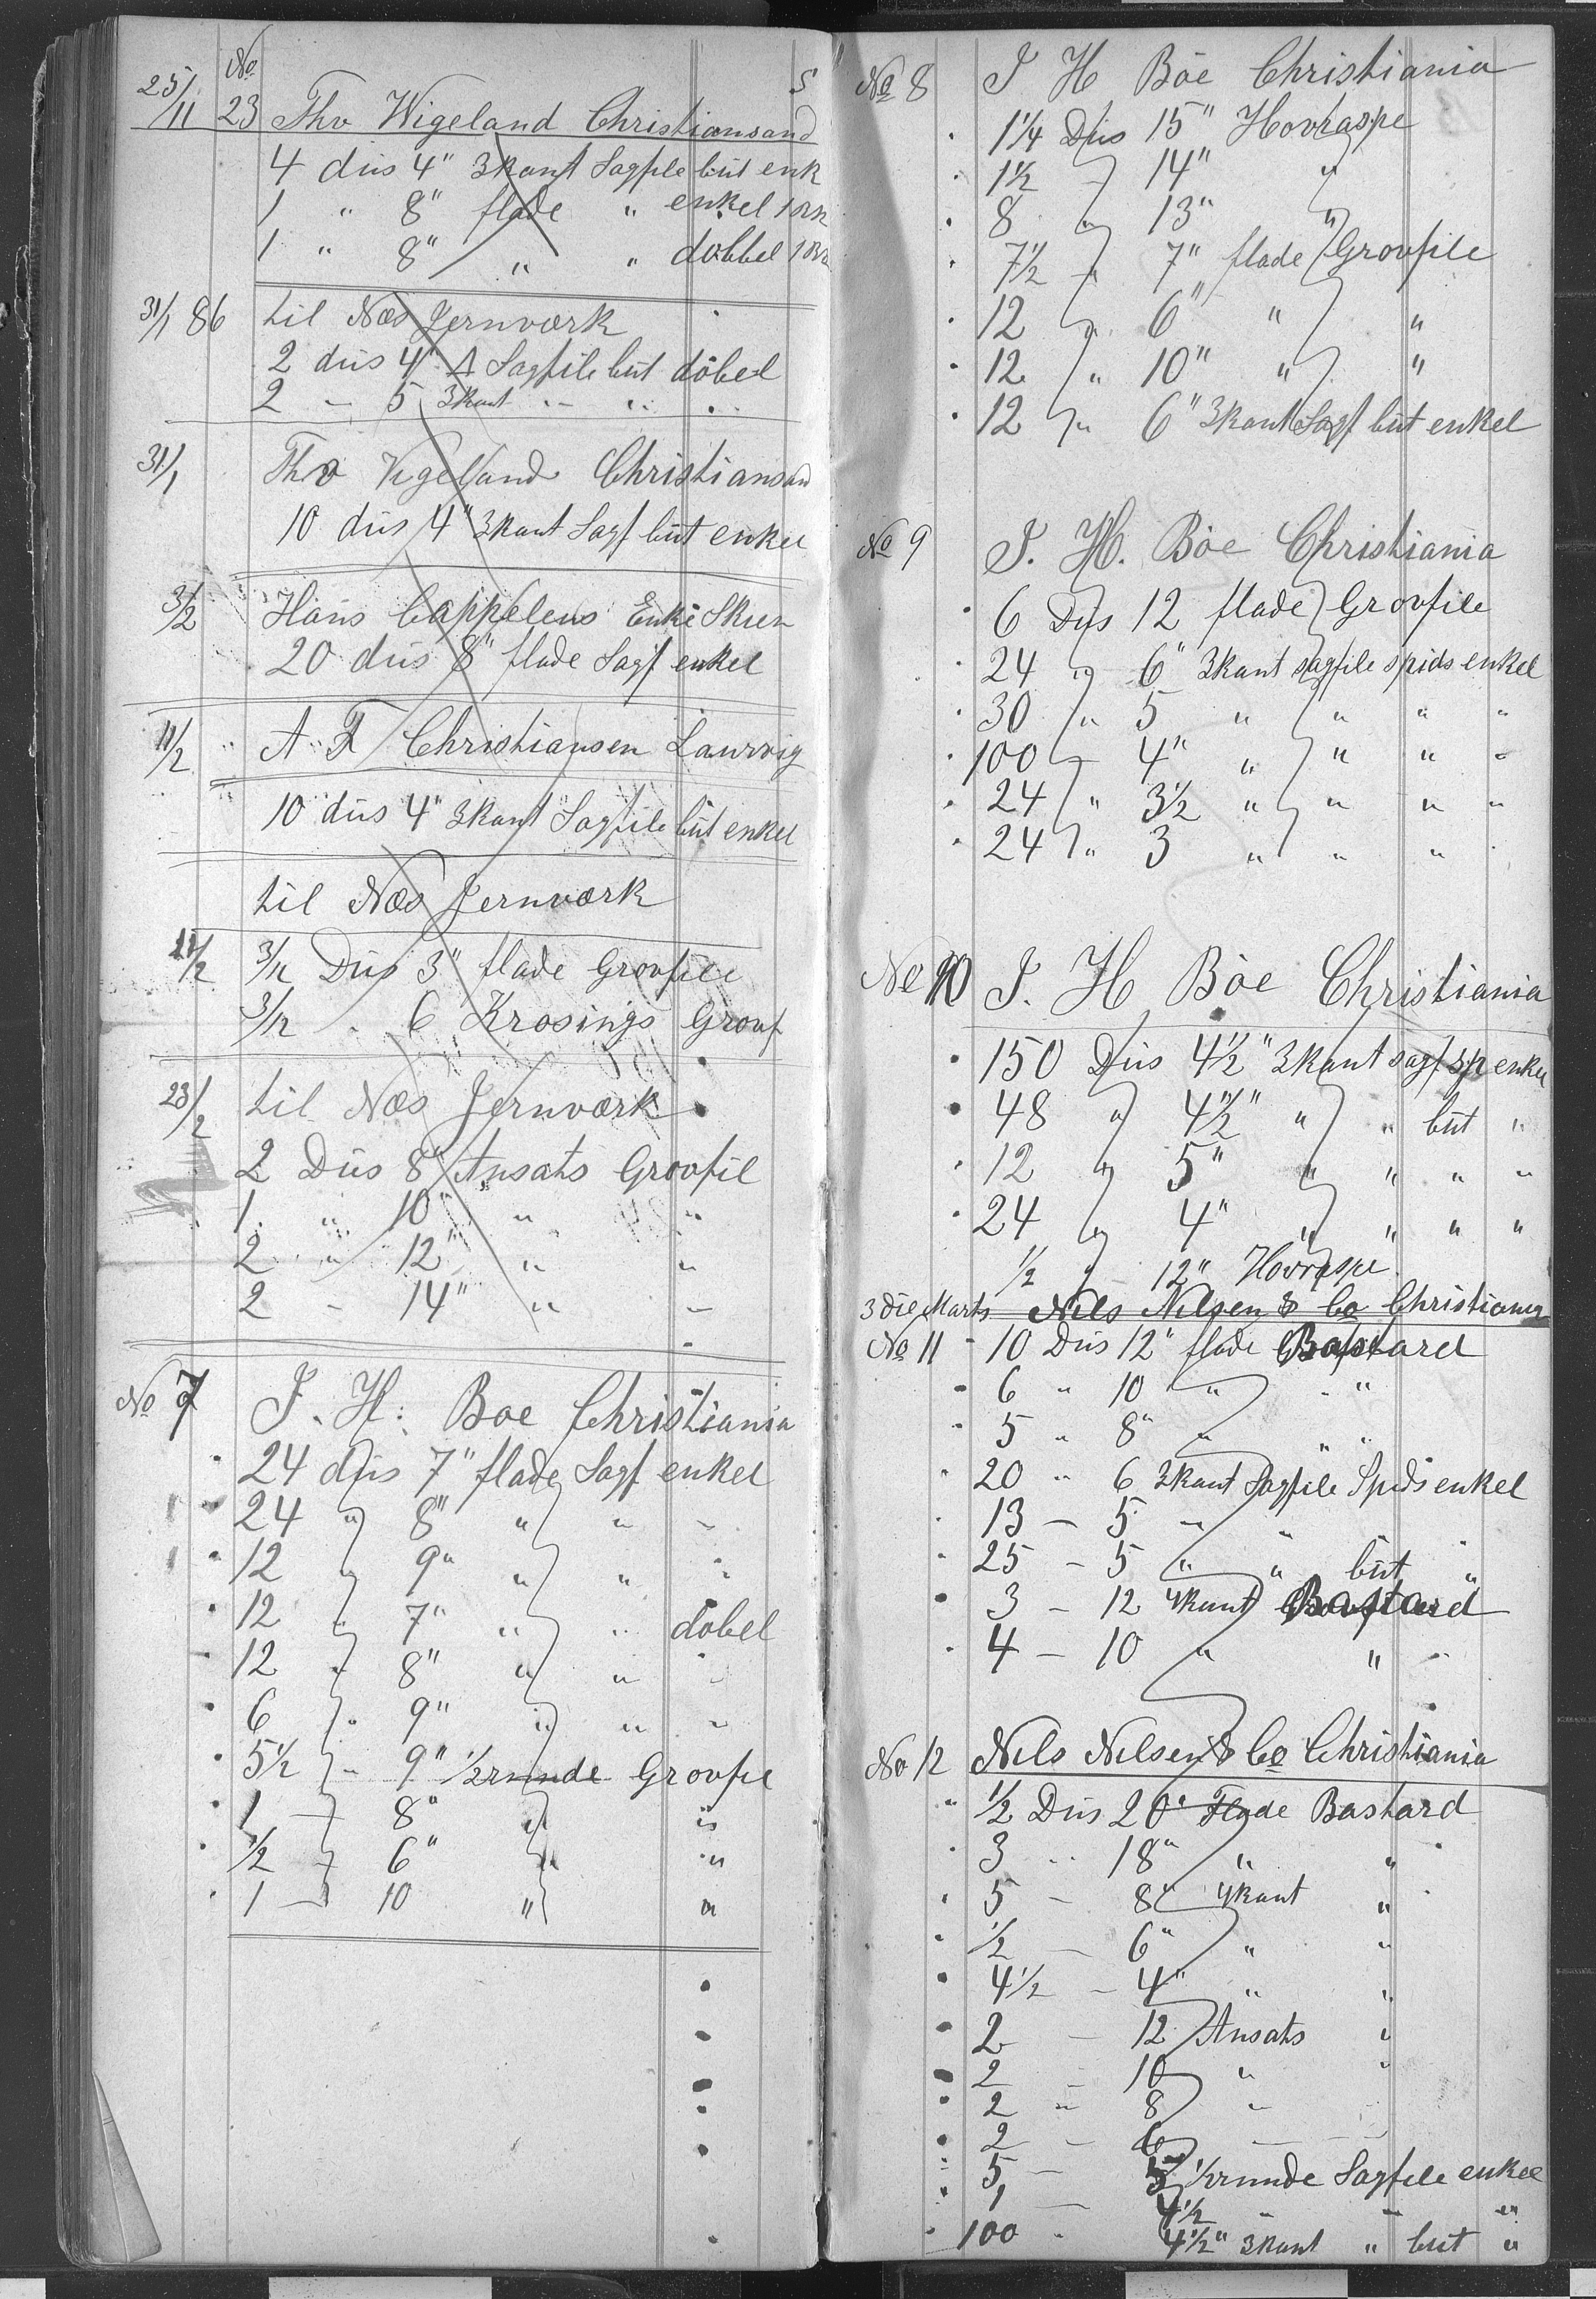 No 5
25/11 23 Thv Wigeland Christiansand
4 düs 4" 3kant Sagfile büt enk
1 " 8" flade " enkel
1 " 8" " " dobbel
31/1 86 til Næs Jernværk
2 düs 4" Δ Sagfile büt döbel
2 - 5 3kant " " "
31/1 Thv Vigeland Christiansand
10 düs 4" 3kant Sagf büt enkel
3/2 Hans Cappelens Enke Skien
20 düs 8" flade Sagf enkel
11/2 A F Christiansen Laurvig
10 düs 4" 3kant Sagfile büt enkel
til Næs Jernværk
11/2 3/12 Düs 3" flade Grovfile
3/12 " 6 Krosings Grovf
23/2 til Næs Jernværk
2 Düs 8" Ansats Grovfil
1 " 10" " "
2 " 12" " "
2 - 14" " -
No 7 J. H. Böe Christiania
24 düs 7" flade Sagf enkel
24 " 8" " " -
12 " 9" " " "
12 " 7" " " döbel
12 " 8" " " "
6 " 9" " " "
5½ - 9" ½runde Grovfil
1 - 8" " "
½ - 6" " "
1 - 10 " "
No 8 J H Böe Christiania
1¼ Düs 15" Hovraspe
1½ - 14" "
8 " 13" "
7½ - 7" flade Grovfile
12 " 6" " "
12 " 10" " "
12 " 6" 3kant Sagf büt enkel
No 9 J. H. Böe Christiania
6 Düs 12 flade Grovfile
24 " 6" 3kant sagfile spids enkel
30 " 5 " " " "
100 - 4" " " " "
24 " 3½ " " " "
24 " 3 " " "
No 10 J. H. Böe Christiania
150 Düs 4½" 3kant sagf sp enkel
48 " 4½" " " büt "
12 " 5" " " " "
24 " 4" " " " "
½ " 12" Hovraspe
3die Marts Nils Nilsen & Co Christiania
No 11 - 10 Düs 12" flade Bastard
6 " 10 " "
5 " 8" " " "
20 " 6 3kant Sagfile Spids enkel
13 - 5 " " "
25 - 5 " " büt "
3 - 12 4kant Bastard
4 - 10 " " "
No 12 Nils Nilsen & Co Christiania
½ Düs 20" Flade Bastard
3 " 18" " "
5 - 8" 4kant "
½ - 6" " "
4½ - 4" " "
2 - 12 Ansats "
2 - 10 " "
2 " 8 "
2 - 6 - -
5 - 5 ½runde Sagfile enkel
1 - 4½ - - "
100 " 4½" 3kant " büt "